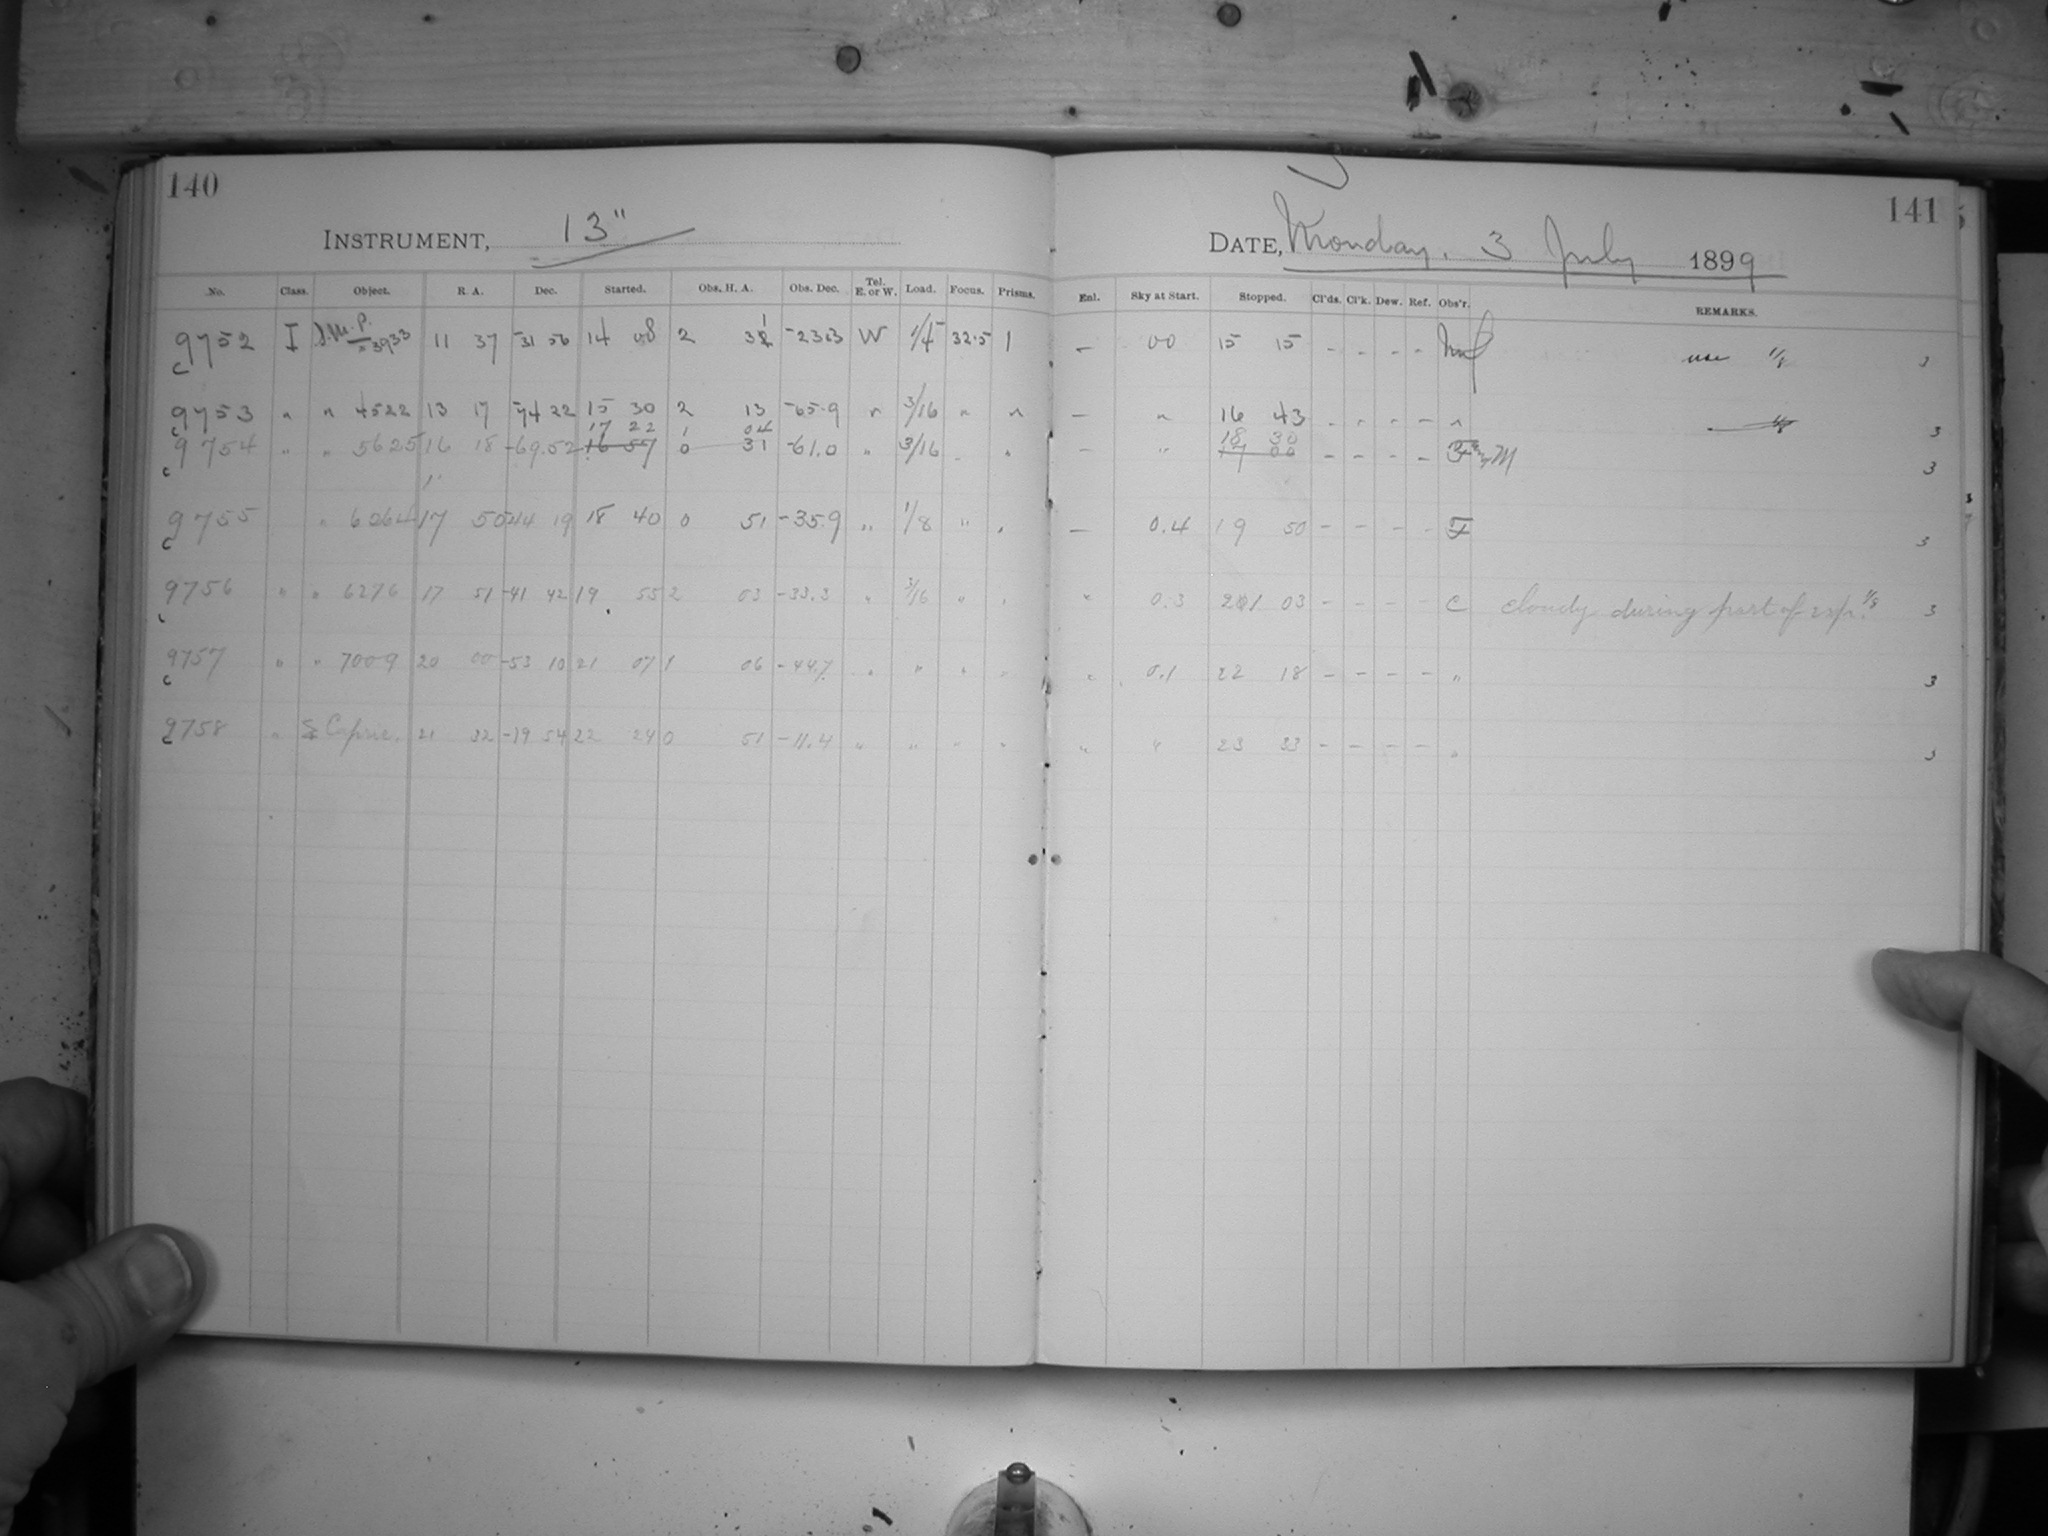 140
INSTRUMENT, 13"
No. Class. Object. R. A. Dec. Started. Obs. H. A. Obs. Dec. Tel. E. or W. Load. Focus. Prisms.
9752 I S.M.P. 3933 11 37 -31 56 14 08 2 31 -23.3 W 1/4 32.5 1
9753 " " 4522 13 17 -74 22 15 30 2 13 -65.9 " 3/16 " "
17 22 1 04
9754 " " 5625 16 18 -69.52 16 57 0 31 -61.0 " 3/16 " "
9755 " 6264 17 50 -44 19 18 40 0 51 -35.9 " 1/8 " "
9756 " " 6276 17 51 -41 42 19 55 2 03 -33.3 " 3/16 " "
9757 " " 7009 20 00 -53 10 21 07 1 06 -44.7 " " " "
9758 " Capric. 21 32 -19 54 22 24 0 51 -11.4 " " " "
141
DATE, Monday, 3 July 1899
Enl. Sky at Start. Stopped. Cl'ds. Cl'k. Dew. Ref. Obs'r. REMARKS.
- 00 15 15 - - - - use 1/8 3
- " 16 43 - - - - " 3
18 30
- " 17 00 - - - - F M 3
- 0.4 19 50 - - - - F 3
" 0.3 21 03 - - - - C cloudy during part of exp. 1/8 3
" 0.1 22 18 - - - - " 3
" " 23 33 - - - - " 3